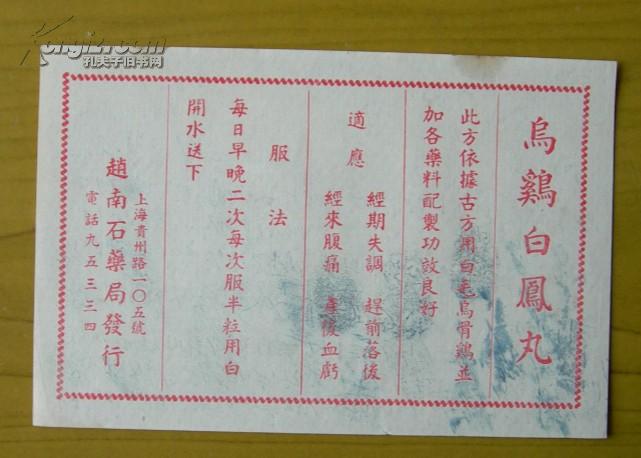 烏鷄白鳳丸
此方依據古方用白毛烏骨鷄並
加各藥料配製功效良好
適應
經期失調 趕前落後
經來腹痛 產後血虧
服法
每日早晚二次每次服半粒用白
開水送下
上海貴州路一〇五號
趙南石藥局發行
電話九五三三四
Kongfz.com
孔夫子旧书网